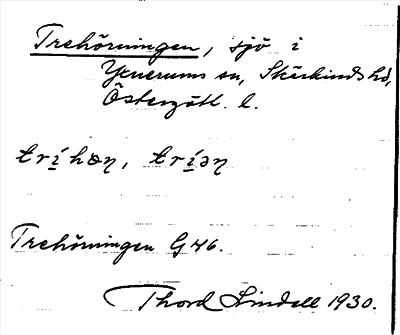 Trehörningen, sjö i
Yxnerums sn, Skärkinds hd,
Östergötl. l.
tríhəŋ, tríəŋ
Trehörningen G46.
Thord Lindell 1930.